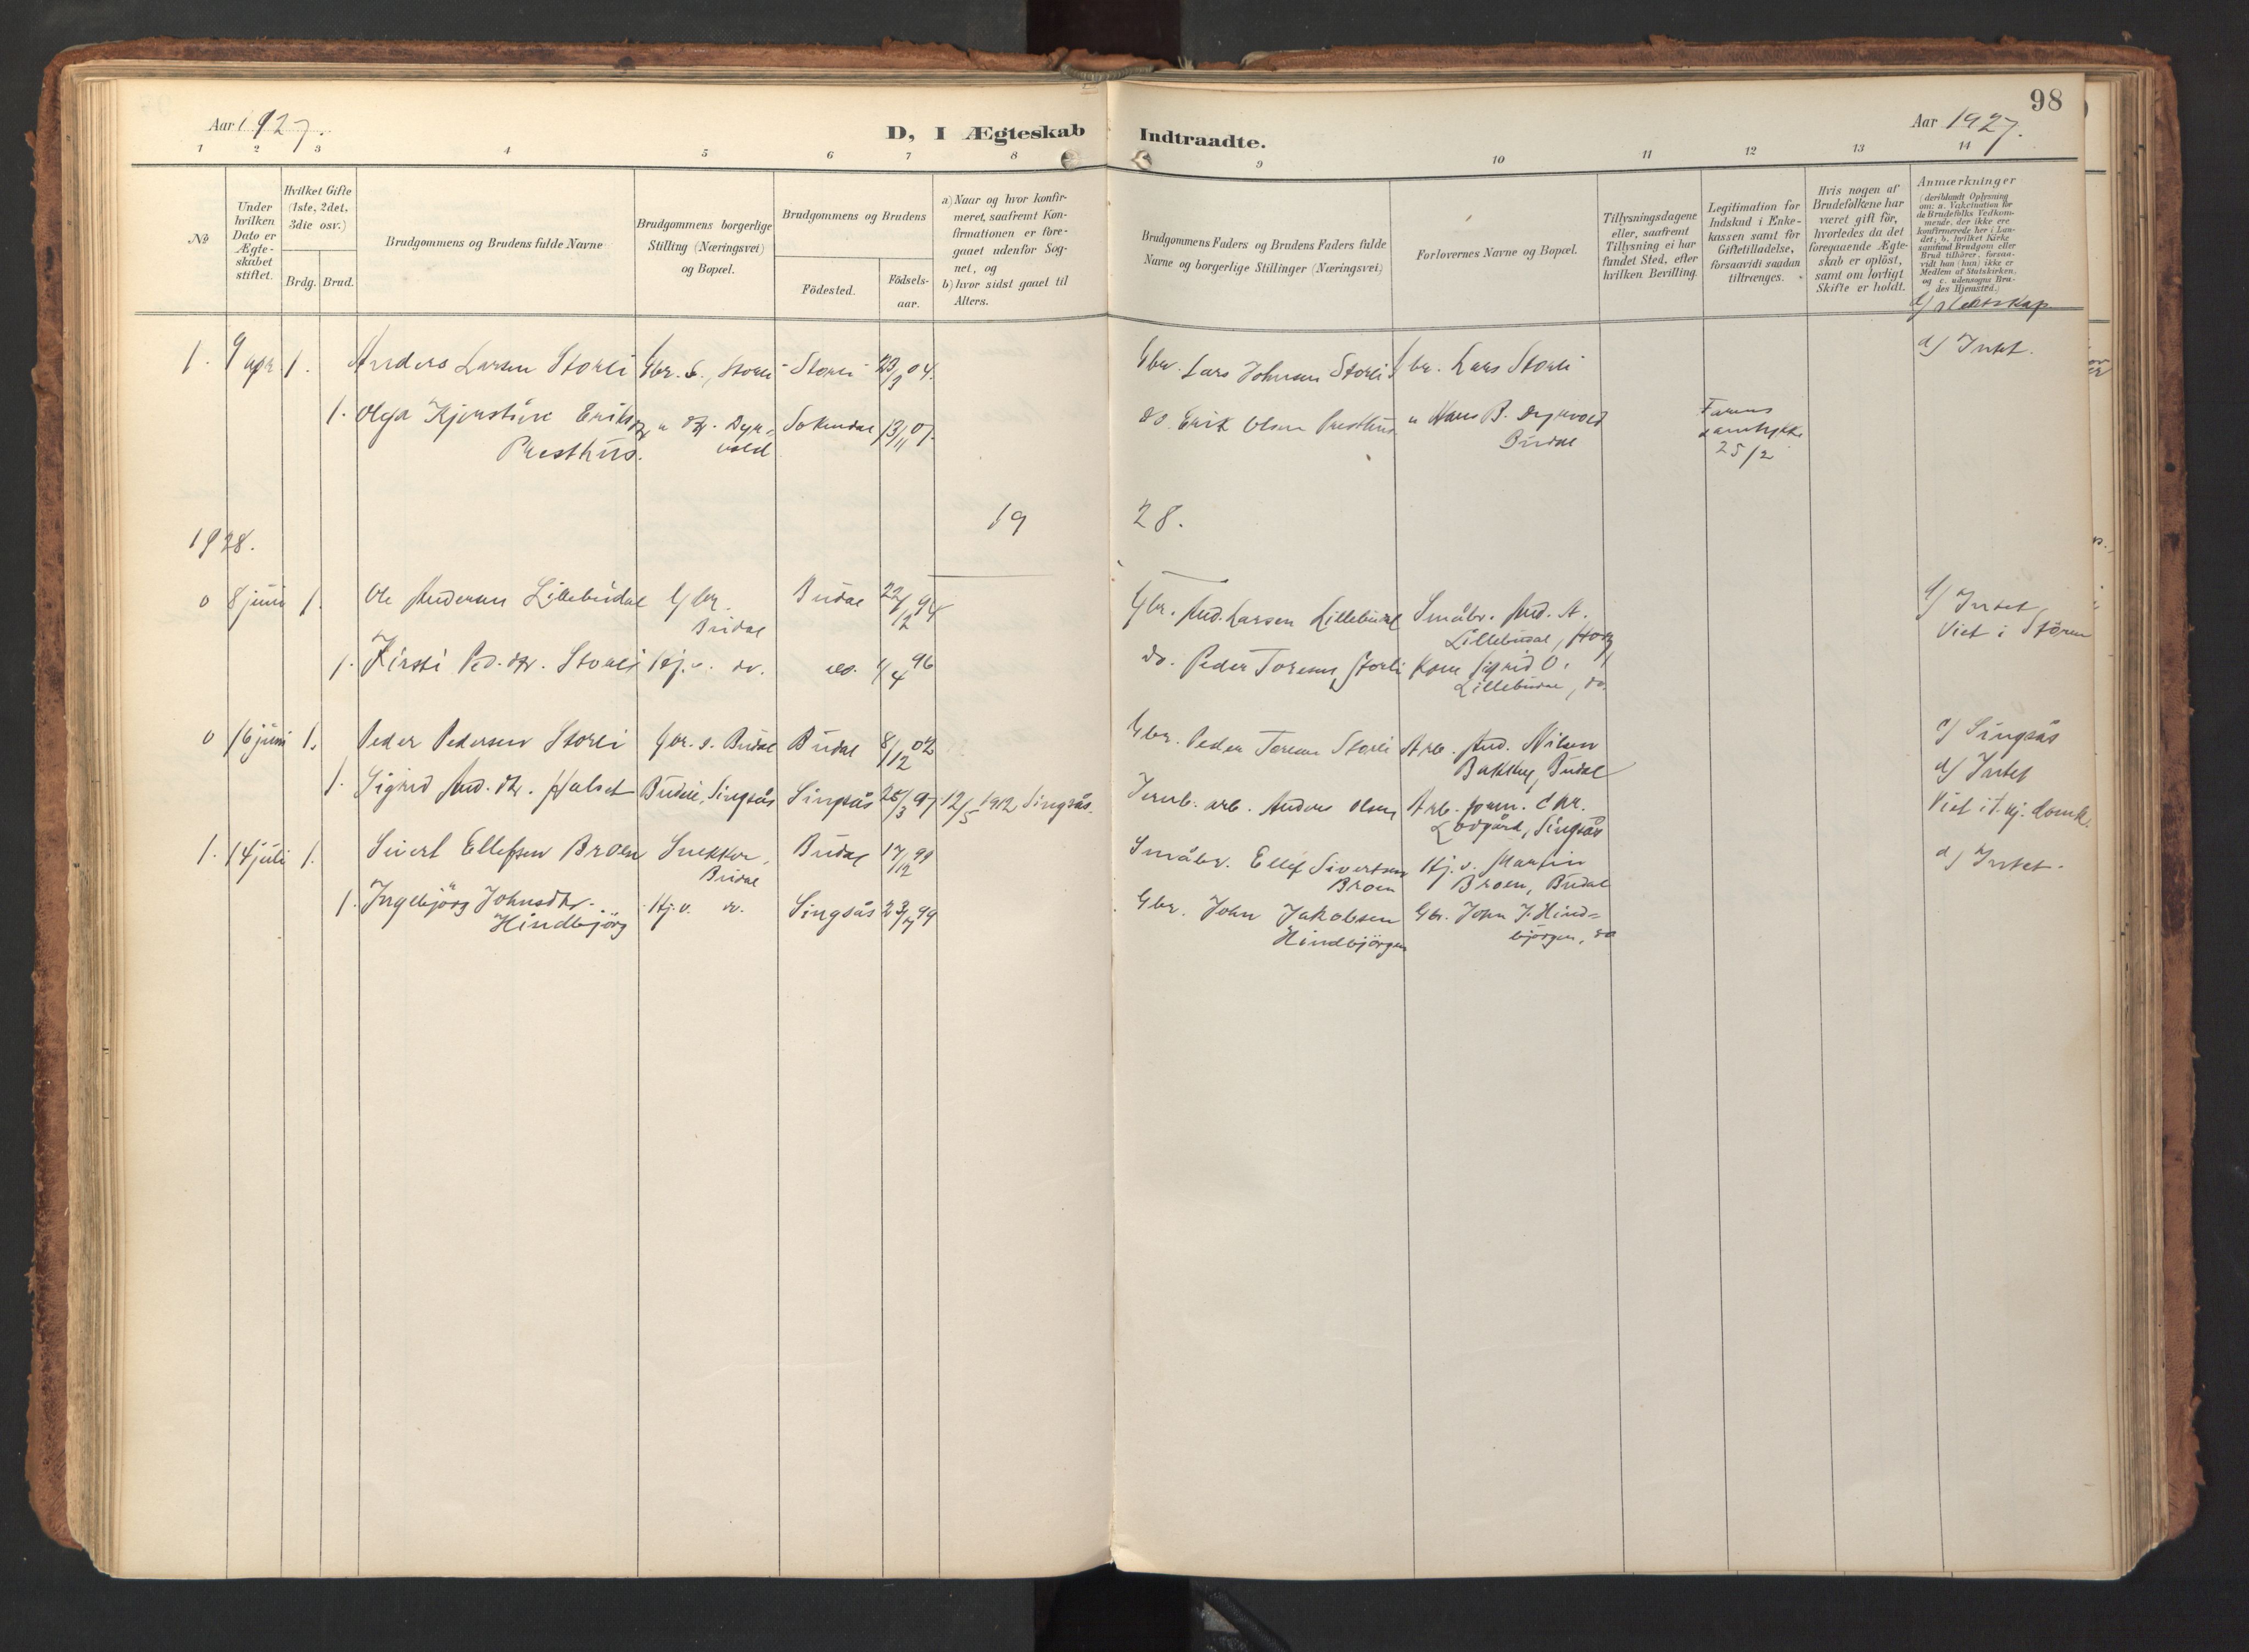 98
Aar 1927.
D, I Ægteskab Indtraadte.
Aar 1927.
1 2 3 4 5 6 7 8 9 10 11 12 13 14
No
Under hvilken Dato er Ægte-skabet stiftet.
Hvilket Gifte (1ste, 2det, 3die osv.)
Brdg. Brud.
Brudgommens og Brudens fulde Navne
Brudgommens borgerlige
Stilling (Næringsvei)
og Bopæl.
Brudgommens og Brudens
Födested.
Födsels-
aar.
a) Naar og hvor konfir-
meret, saafremt Kon-
firmationen er fore-
gaaet udenfor Sog-
net, og
b) hvor sidst gaaet til
Alters.
Brudgommens Faders og Brudens Faders fulde
Navne og borgerlige Stillinger (Næringsvei)
Forlovernes Navne og Bopæl.
Tillysningsdagene
eller, saafremt
Tillysning ei har
fundet Sted, efter
hvilken Bevilling.
Legitimation for
Indskud i Enke-
kassen samt for
Giftetilladelse,
forsaavidt saadan
tiltrænges.
Hvis nogen af
Brudefolkene har
været gift för,
hvorledes da det
foregaaende Ægte-
skab er oplöst,
samt om lovligt
Skifte er holdt.
Anmærkninger
(deriblandt Oplysning
om: a. Vakcination for
de Brudefolks Vedkom-
mende, der ikke ere
konfirmerede her i Lan-
det; b. hvilket Kirke
samfund Brudgom eller
Brud tilhører, forsaa-
vidt han (hun) ikke er
Medlem af Statskirken,
og c. udensogns Bru-
des Hjemsted.)
d) slektskap
1. 9 apr 1. Anders Larsen Storli Gbr. s., Storli Storli 23/3 04. Gbr. Lars Johnsen Storli Gbr. Lars Storli d) Intet.
1. Olga Kjerstine Eriksdtr Presthus. Dyrvold Soknedal 13/11 07. do. Erik Olsen Presthus Hans B. Dyrvold Budal Farens samtykke 25/2
1928.
19 28.
0 8 juni 1. Ole Andersen Lillebudal Gbr. Budal Budal 22/12 94 Gbr. And. Larsen Lillebudal Småbr. And. A. Lillebudal, d) Intet Viet i Stören
1. Kirsti Ped.dtr. Storli Hj.v. do. do. 4/4 96 do. Peder Toresen Storli Kone Sigrid O. Lillebudal, do.
0 16 juni 1. Peder Pedersen Storli Gbr. s. Budal Budal 8/12 02 Gbr. Peder Toresen Storli Arb. And. Nilsen Bakken, Budal c) Singsås
1. Sigrid And.dtr. Halset Budal, Singsås Singsås 25/3 97 12/5 1912 Singsås. Jernb. arb. Anders Olsen Arb. Chr. Lödgård, Singsås d) Intet Viet i T.hj. domk.
1. 14 juli 1. Sivert Ellefsen Broen Snekker, Budal Budal 17/12 99 Småbr. Ellef Sivertsen Broen Hj.v. Martin Broen, Budal d) Intet.
1. Ingebjörg Johnsdtr. Hindbjörg Hj.v. do. Singsås 23/7 99 Gbr. John Jakobsen Hindbjörgen Gbr. John J. Hindbjörgen, do